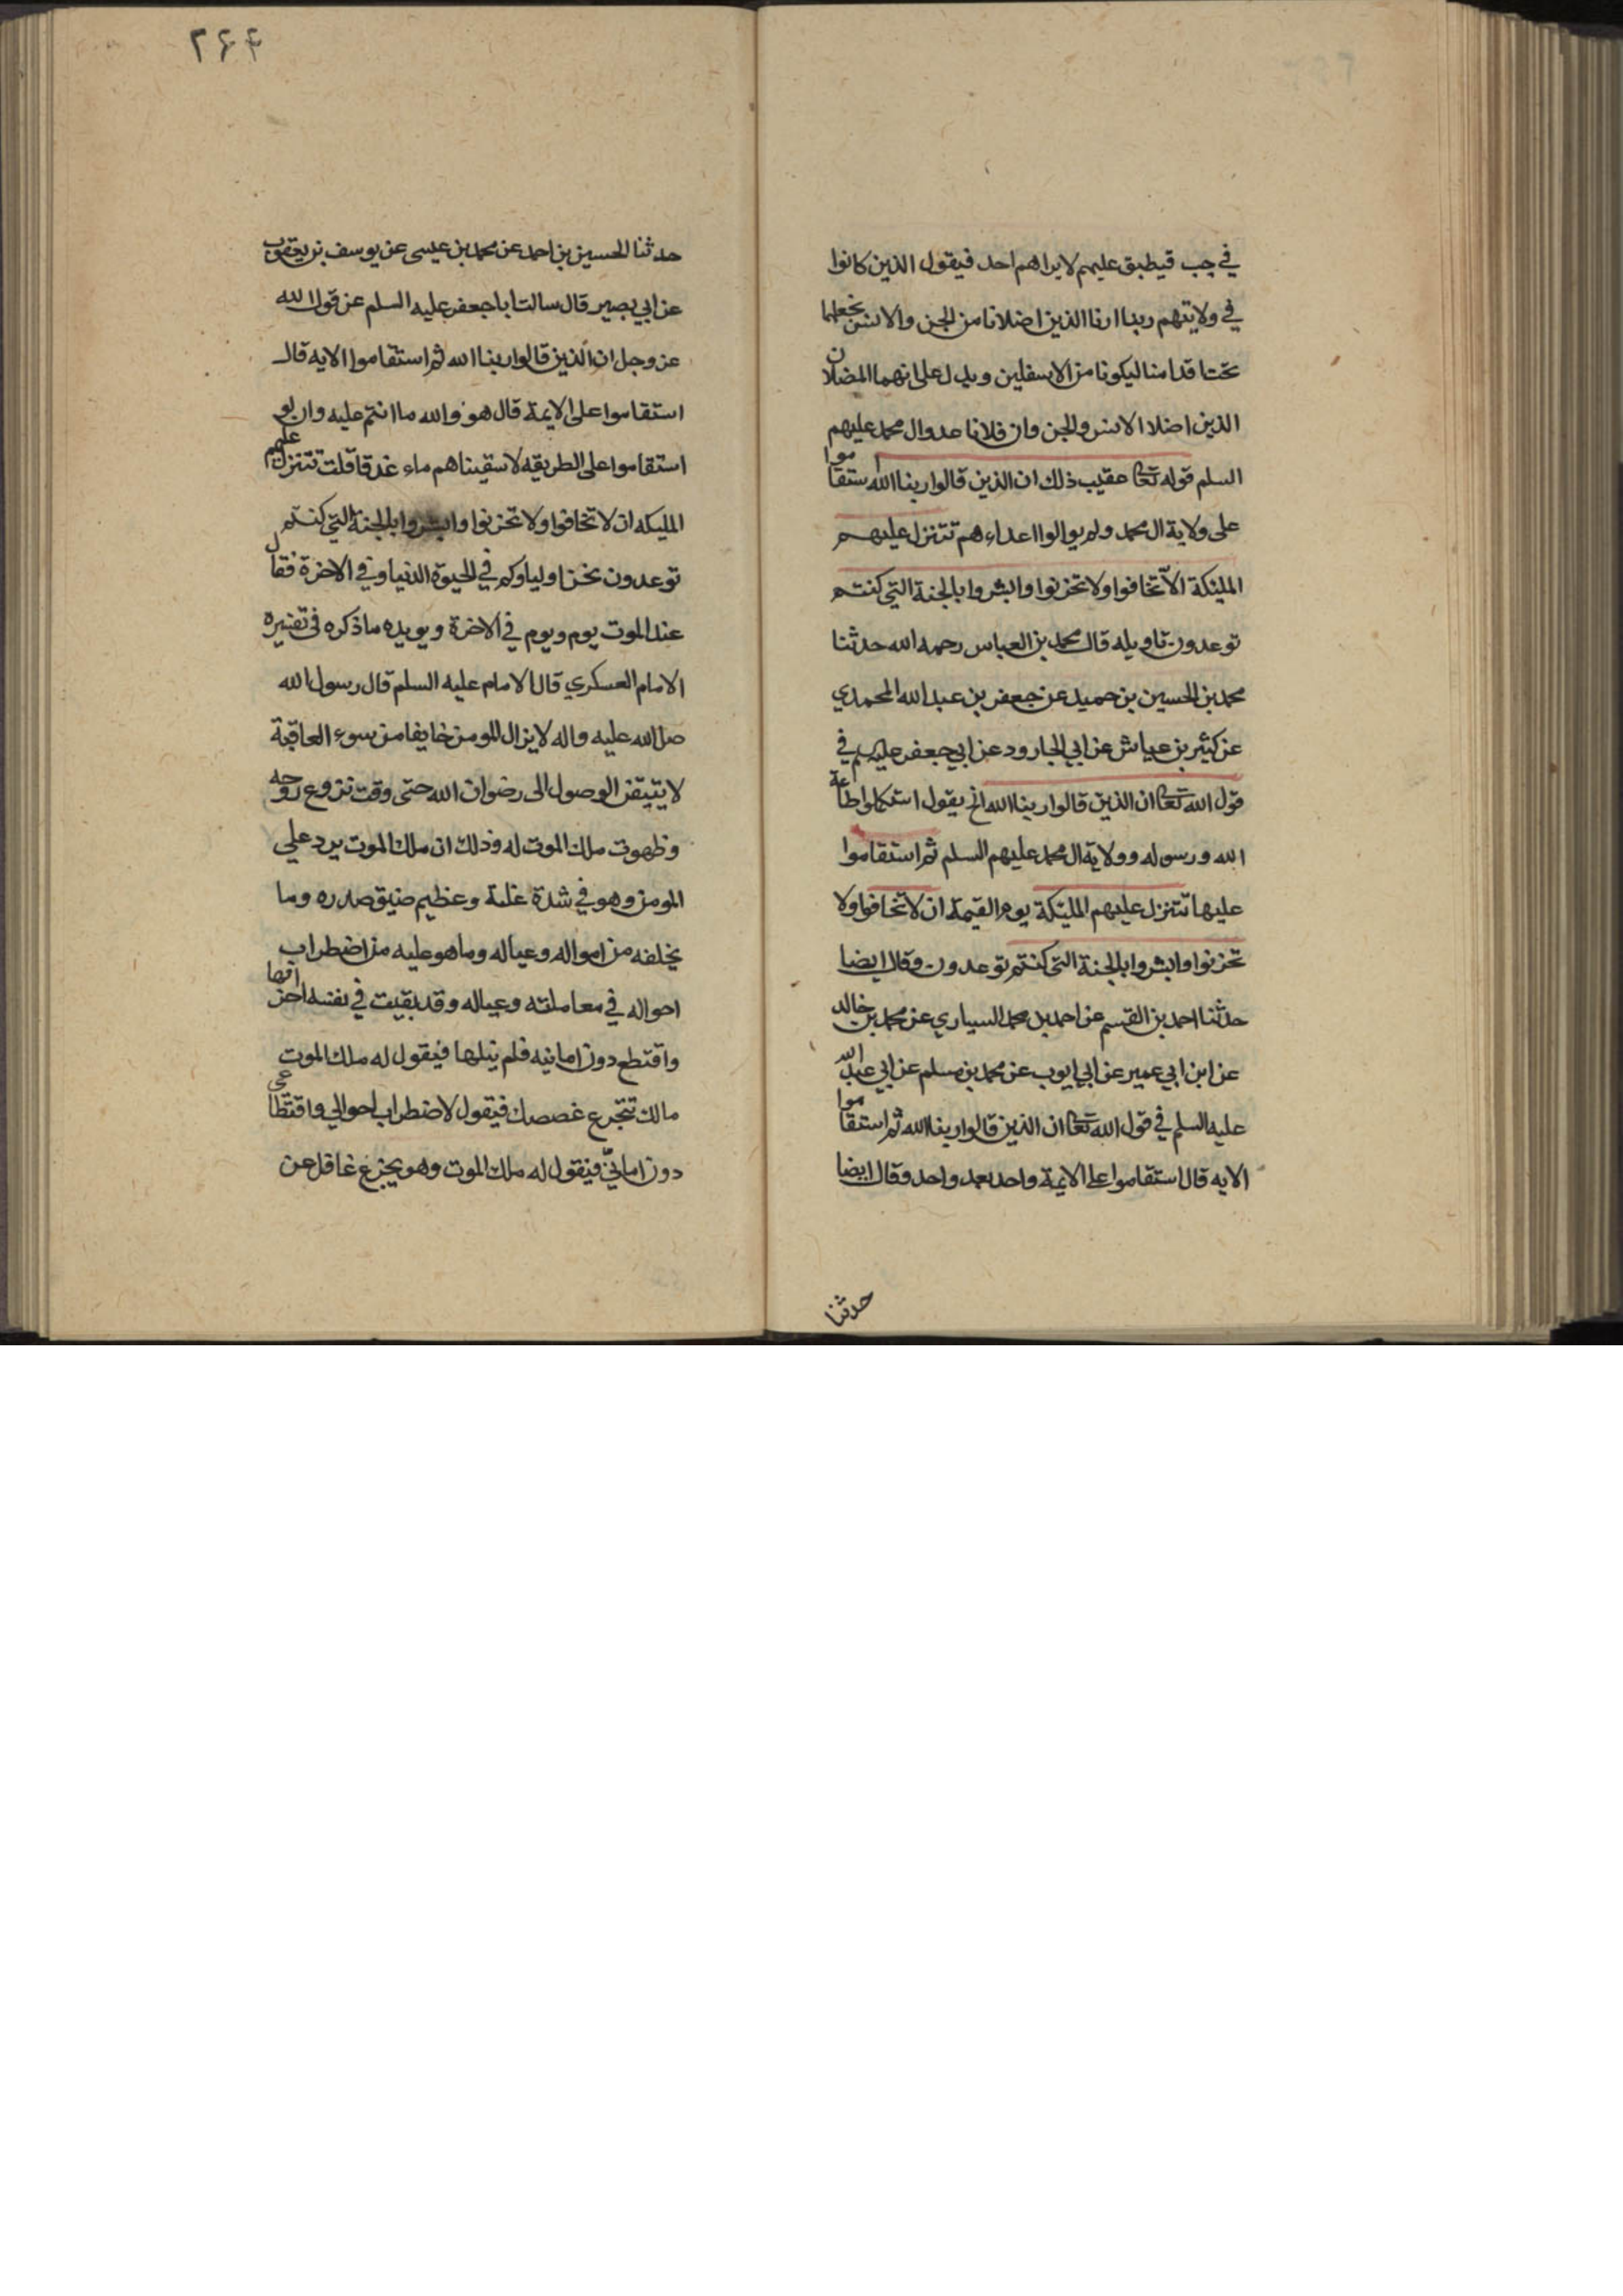 في جب فيطبق عليهم لايراهم احد فيقول الذين كانوا
في ولايتهم ربنا ارنا الذين اضلانا من الجن والانس نجعلهما
تحت اقدامنا ليكونا من الاسفلين ويدل على انهما المضلان
الذين اضلا الانس والجن وان فلانا عدو ال محمد عليهم
السلم قوله تعالى عقيب ذلك ان الذين قالوا ربنا الله استقاموا
على ولاية ال محمد ولم يوالوا اعداءهم تتنزل عليهم
الملئكة الا تخافوا ولا تحزنوا وابشروا بالجنة التي كنتم
توعدون تاويله قال محمد بن العباس رحمه الله حدثنا
محمد بن الحسين بن حميد عن جعفر بن عبد الله المحمدي
عن كثير بن عياش عن ابي الجارود عن ابي جعفر عليه السلم في
قول الله تعالى ان الذين قالوا ربنا الله الخ يقول استكملوا طاعة
الله ورسوله وولاية ال محمد عليهم السلم ثم استقاموا
عليها تتنزل عليهم الملئكة يوم القيمة ان لا تخافوا ولا
تحزنوا وابشروا بالجنة التي كنتم توعدون وقال ايضا
حدثنا احمد بن القسم عن احمد بن محمد السياري عن محمد بن خالد
عن ابن ابي عمير عن ابي ايوب عن محمد بن مسلم عن ابي عبد الله
عليه السلم في قول الله تعالى ان الذين قالوا ربنا الله ثم استقاموا
الايه قال استقاموا على الايمة واحد بعد واحد وقال ايضا
حدثنا
۲۶۴
حدثنا الحسين بن احمد عن محمد بن عيسى عن يوسف بن يعقوب
عن ابي بصير قال سالت ابا جعفر عليه السلم عن قول الله
عز وجل ان الذين قالوا ربنا الله ثم استقاموا الايه قال
استقاموا على الايمة قال هو والله ما انتم عليه وان لو
استقاموا على الطريقه لاسقيناهم ماء غدقا قلت تتنزل عليهم
المليكه ان لا تخافوا ولا تحزنوا وابشروا بالجنة التي كنتم
توعدون نحن اولياوكم في الحيوة الدنيا وفي الاخرة فقال
عند الموت يوم ويوم في الاخرة ويويده ما ذكره في تفسيره
الامام العسكري قال الامام عليه السلم قال رسول الله
صلى الله عليه واله لا يزال المومن خايفا من سوء العاقبة
لا يتيقن الوصول الى رضوان الله حتى وقت نزوع روحه
وظهوت ملك الموت له وذلك ان ملك الموت يرد علي
المومن وهو في شدة علة وعظيم ضيق صدره وما
يخلفه من امواله وعياله وما هو عليه من اضطراب
احواله في معاملته وعياله وقد بقيت في نفسه
واقتطع دون امانيه فلم ينلها فيقول له ملك الموت
مالك تتجرع غصصك فيقول لاضطراب احوالي واقتطاعي
دون امانيّ فيقول له ملك الموت وهو يجزع غافل عن